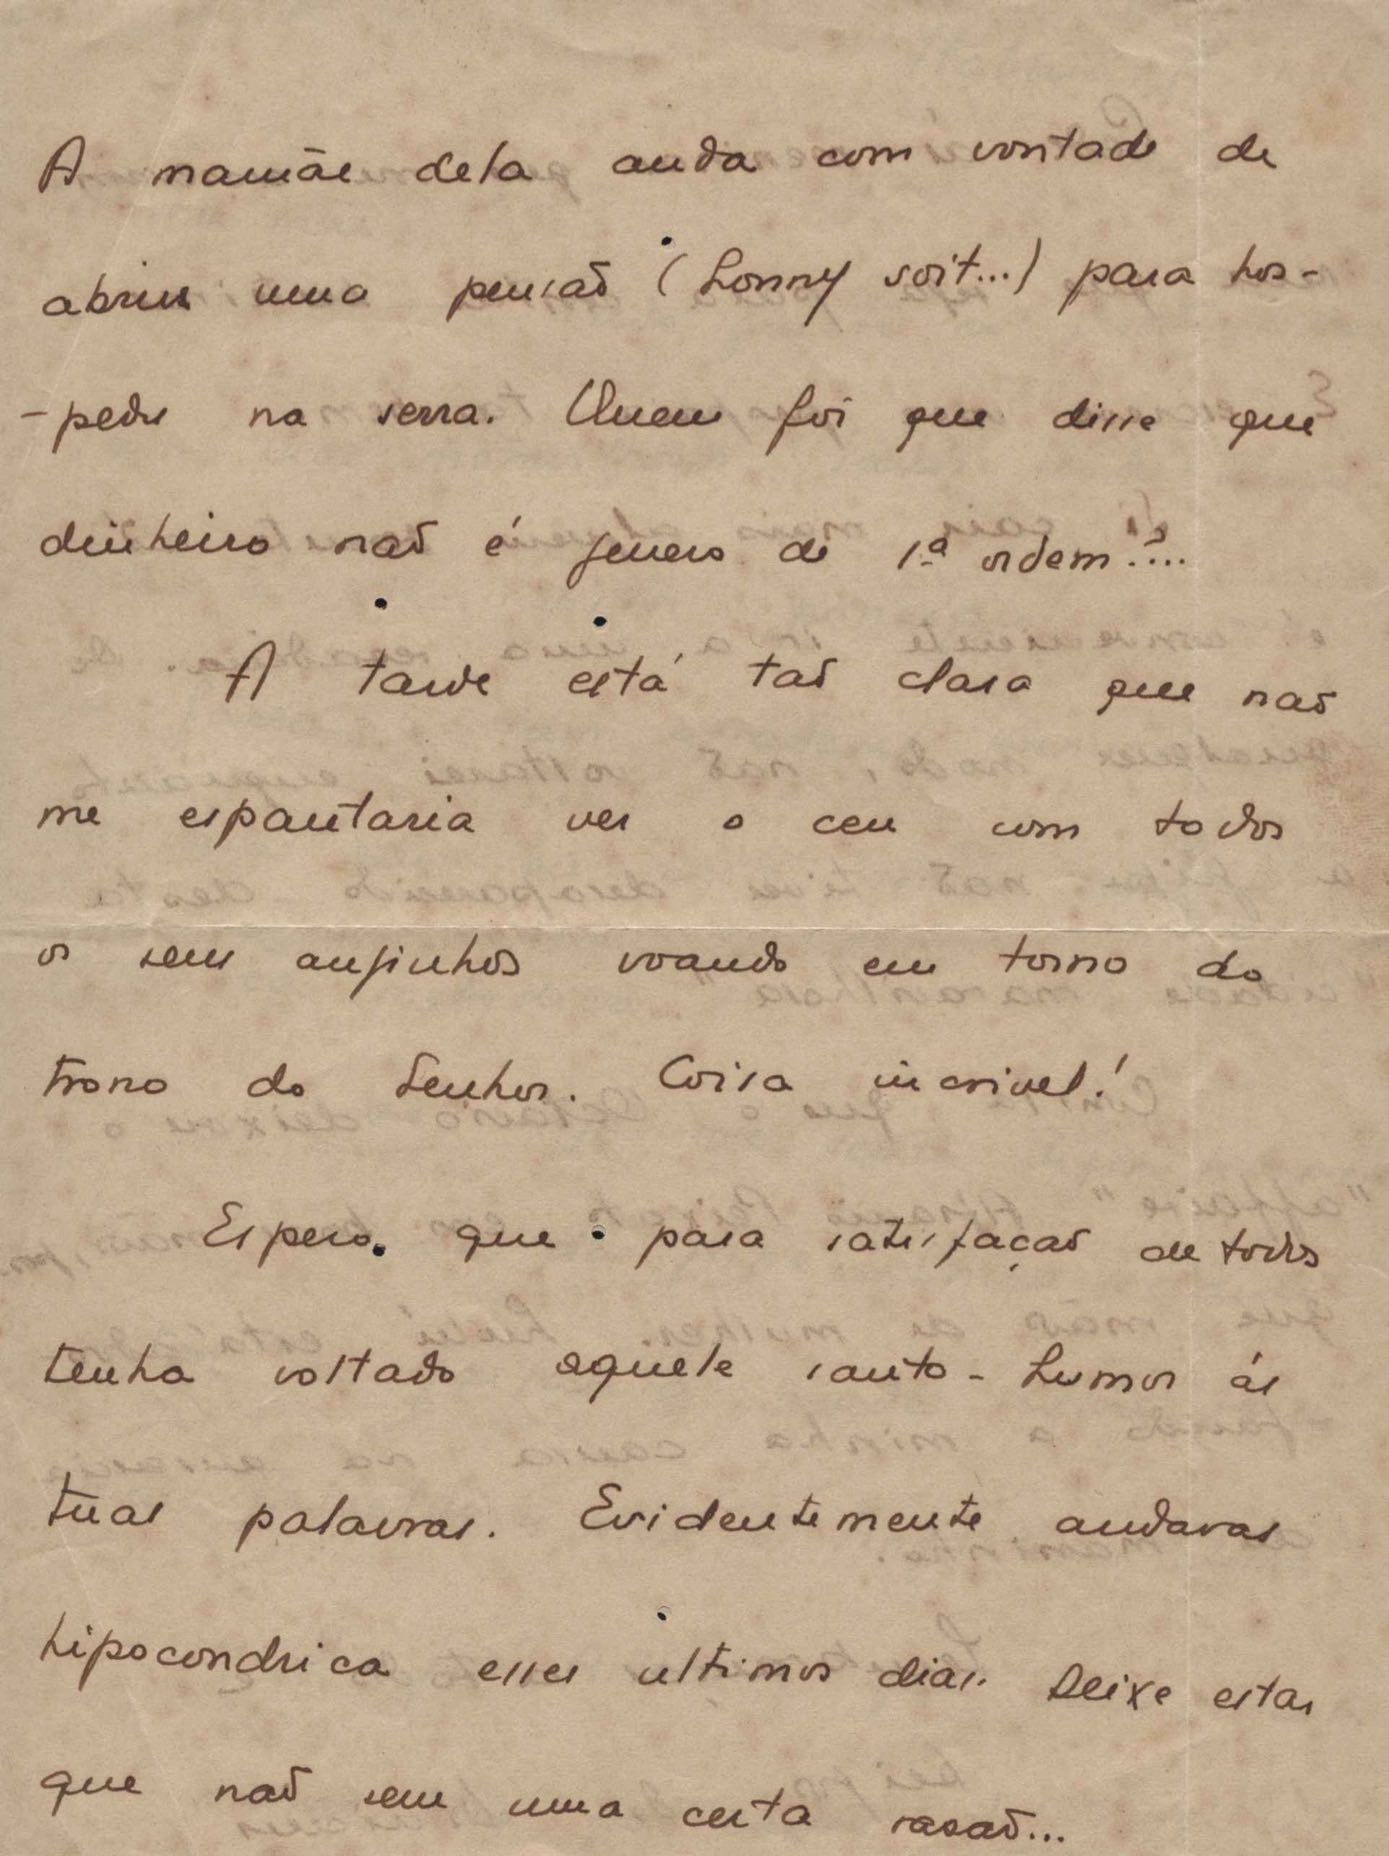 A mamãe dela anda com vontade de
abrir uma pensaõ (honny soit...) para hos-
-pedes na serra. Quem foi que disse que
dinheiro naõ é genero de 1ª ordem?...
A tarde está taõ clara que naõ
me espantaria ver o ceu com todos
os seus anjinhos voando em torno do
trono do Senhor. Coisa incrivel!
Espero que para satisfaçaõ de todos
tenha voltado aquele santo-humor ás
tuas palavras. Evidentemente andavas
hipocondrica esses ultimos dias. Deixe estar
que naõ sem uma certa rasaõ...